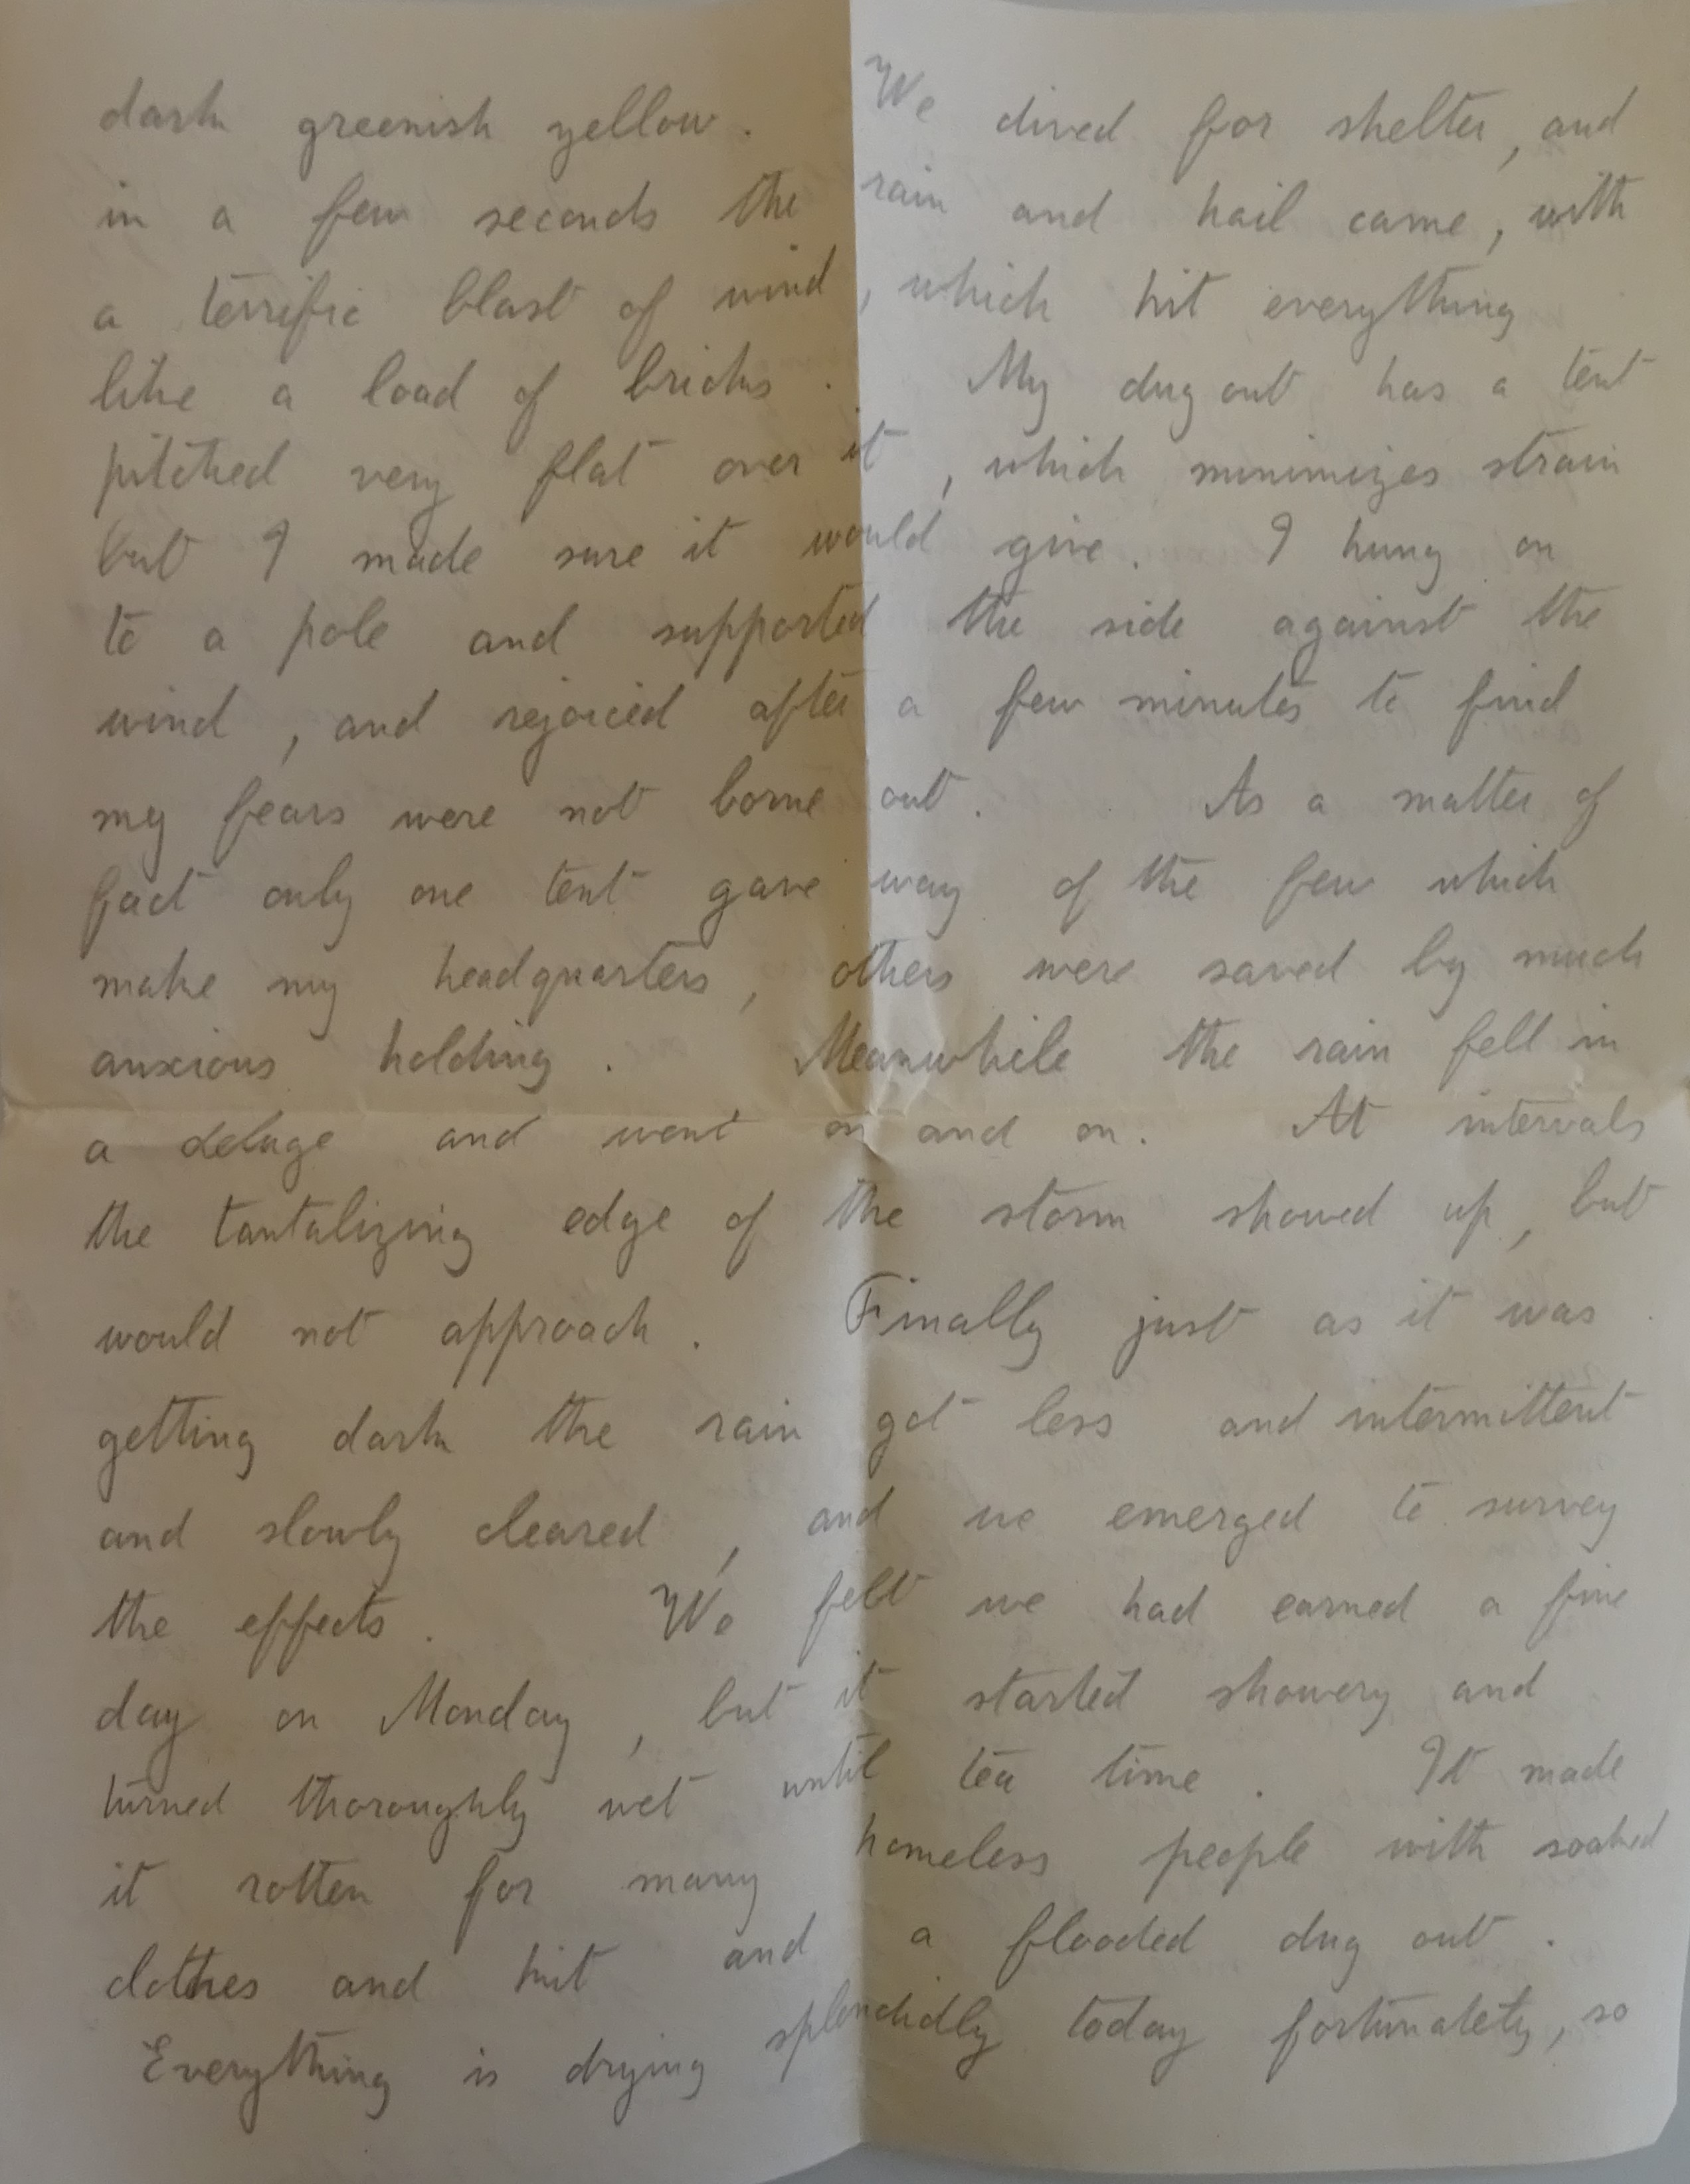 dark greenish yellow. We dived for shelter, and
in a few seconds the rain and hail came, with
a terrific blast of wind, which hit everything
like a load of bricks. My dug out has a tent
pitched very flat over it, which minimizes strain
but I made sure it would give. I hung on
to a pole and supported the side against the
wind, and rejoiced after a few minutes to find
my fears were not borne out. As a matter of
fact only one tent gave way of the few which
make my headquarters, others were saved by much
anxious holding. Meanwhile the rain fell in
a deluge and went on and on. At intervals
the tantalizing edge of the storm showed up, but
would not approach. Finally just as it was
getting dark the rain got less and intermittent
and slowly cleared, and we emerged to survey
the effects. We felt we had earned a fine
day on Monday, but it started showery and
turned thoroughly wet until tea time. It made
it rotten for many homeless people with soaked
clothes and kit and a flooded dug out.
Everything is drying splendidly today fortunately, so